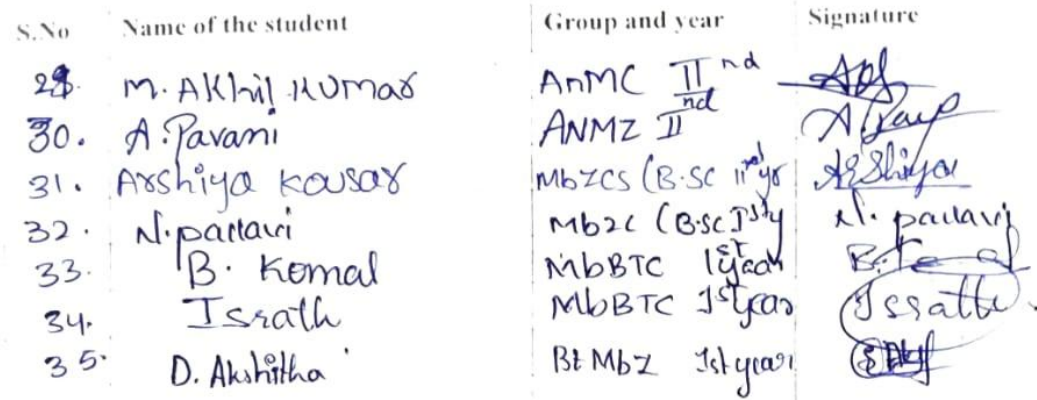 S.No Name of the student Group and year Signature
M. Akhil Kumar AnMC II nd
30. A. Pavani ANMZ II nd
31. Arshiya Kousar MbZCS (B.SC IInd yr Arshiya
32. N. pallavi MbZC (B.SC Ist y N. pallavi
33. B. Komal MbBTC 1st year
34. Israth MbBTC 1st year Israth
35. D. Akshitha Bt MbZ 1st year